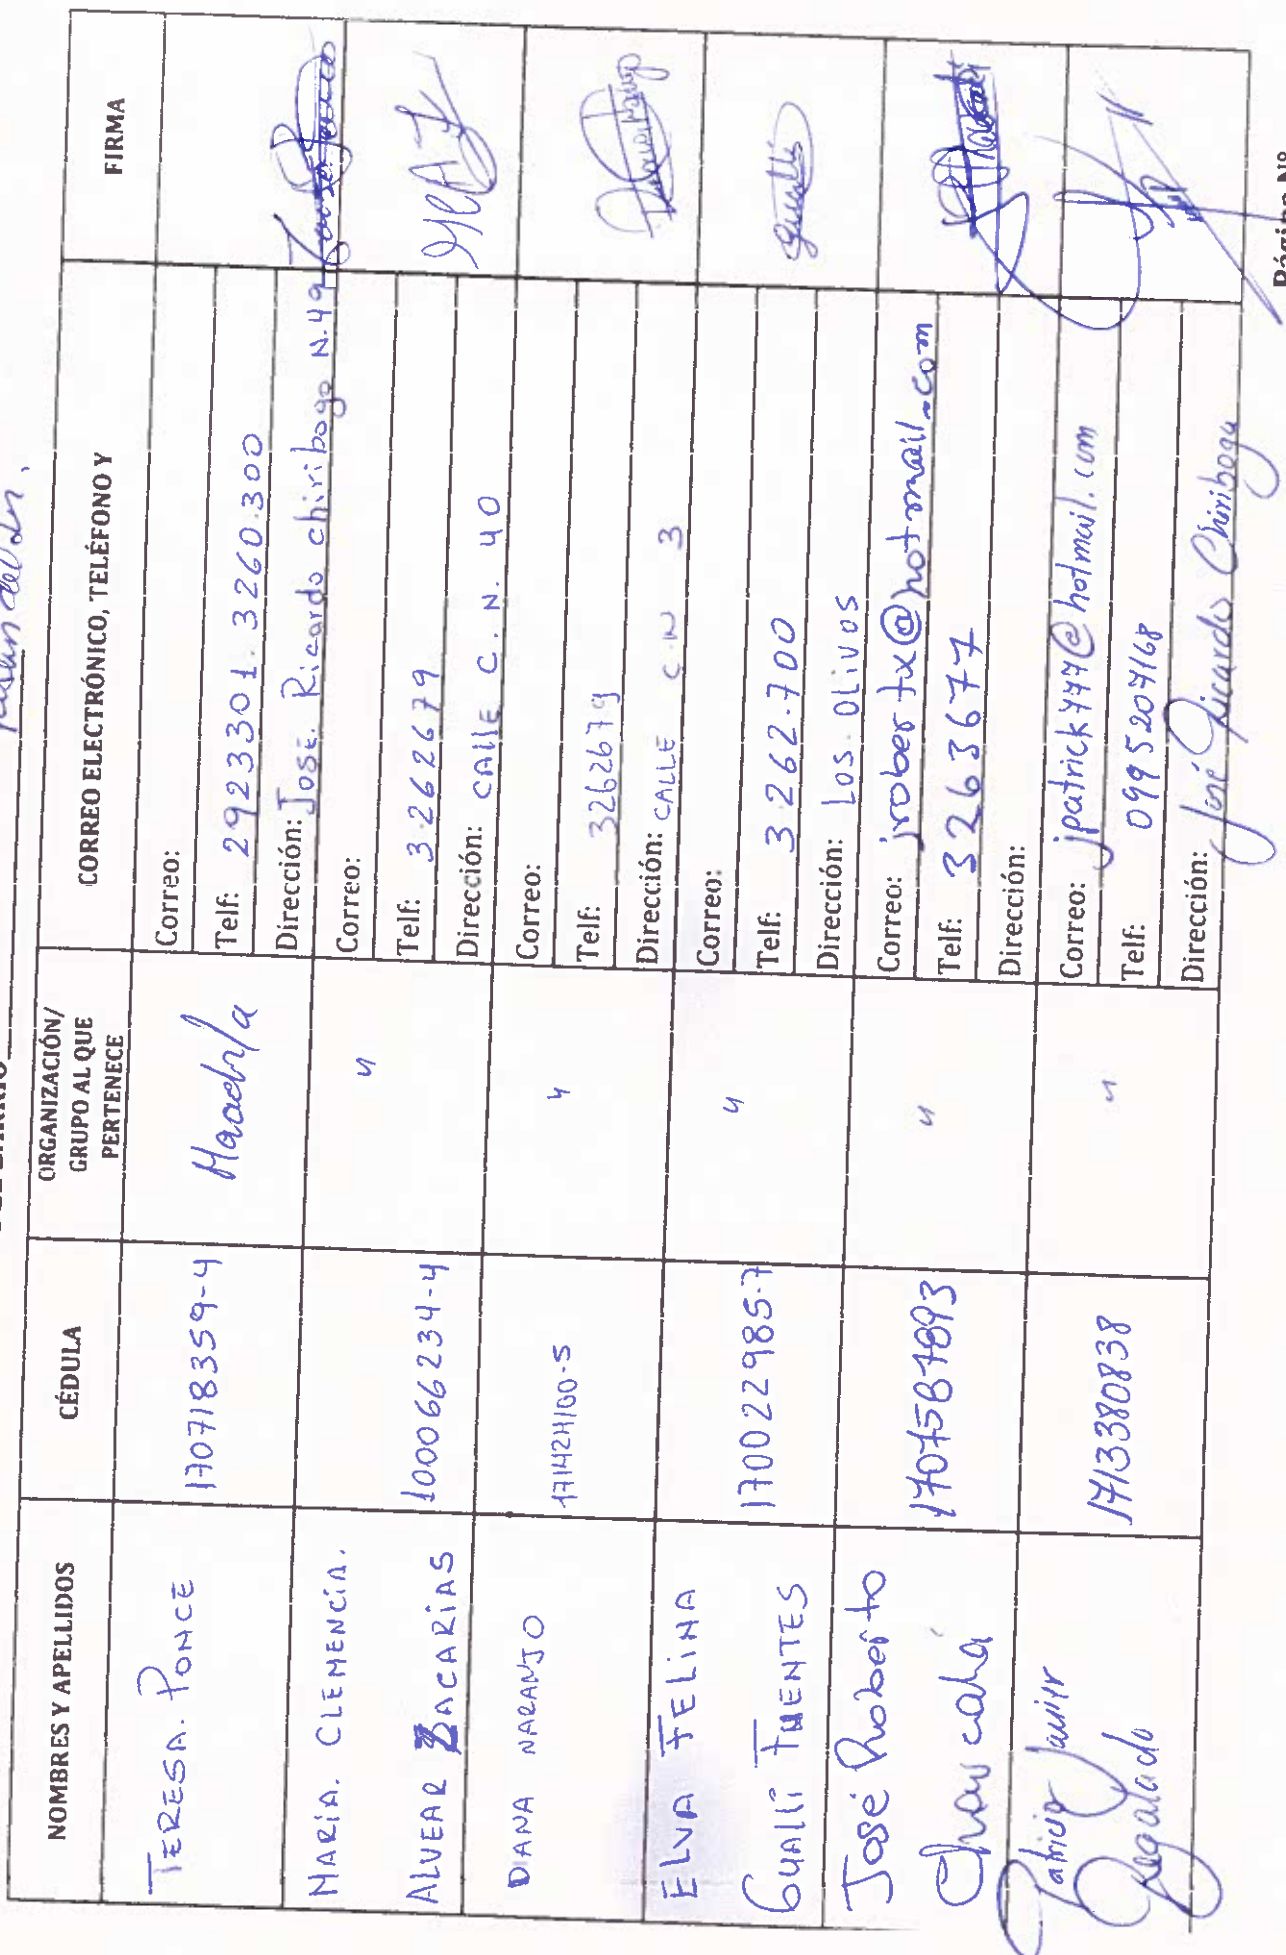 NOMBRES Y APELLIDOS
CÉDULA
ORGANIZACIÓN/
GRUPO AL QUE
PERTENECE
CORREO ELECTRÓNICO, TELÉFONO Y
FIRMA
TERESA. PONCE
170718359-4
Correo:
Telf: 2923301. 3260.300
Dirección: José. Ricardo chiribogo N.49
MARÍA. CLEMENCÍA.
ALVEAR ZACARÍAS
100066234-4
"
Correo:
Telf: 3.262679
Dirección: CAllE C. N. 40
DIANA NARANJO
171424100-5
"
Correo:
Telf: 3262679
Dirección: CALLE C.N 3
ELVA FELINA
GUALLÍ FUENTES
170022985-7
"
Correo:
Telf: 3.262.700
Dirección: LOS. OLIVOS
Guallí
José Roberto
1707587893
"
Correo: jrobertx@hotmail.com
Telf: 3263677
Dirección:
Patricio Javier
Regalado
1713380838
"
Correo: jpatrick777@hotmail.com
Telf: 0995207168
Dirección: José Ricardo Chiriboga
Página Nº